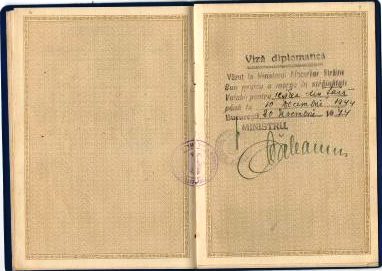 Viză diplomatică
Văzut la Ministerul Afacerilor Străine
Bun pentru a merge în străinătate
Valabil pentru din țară
până la 10 Decembrie 1944
București, 20 Noembrie 1944
MINISTRU,